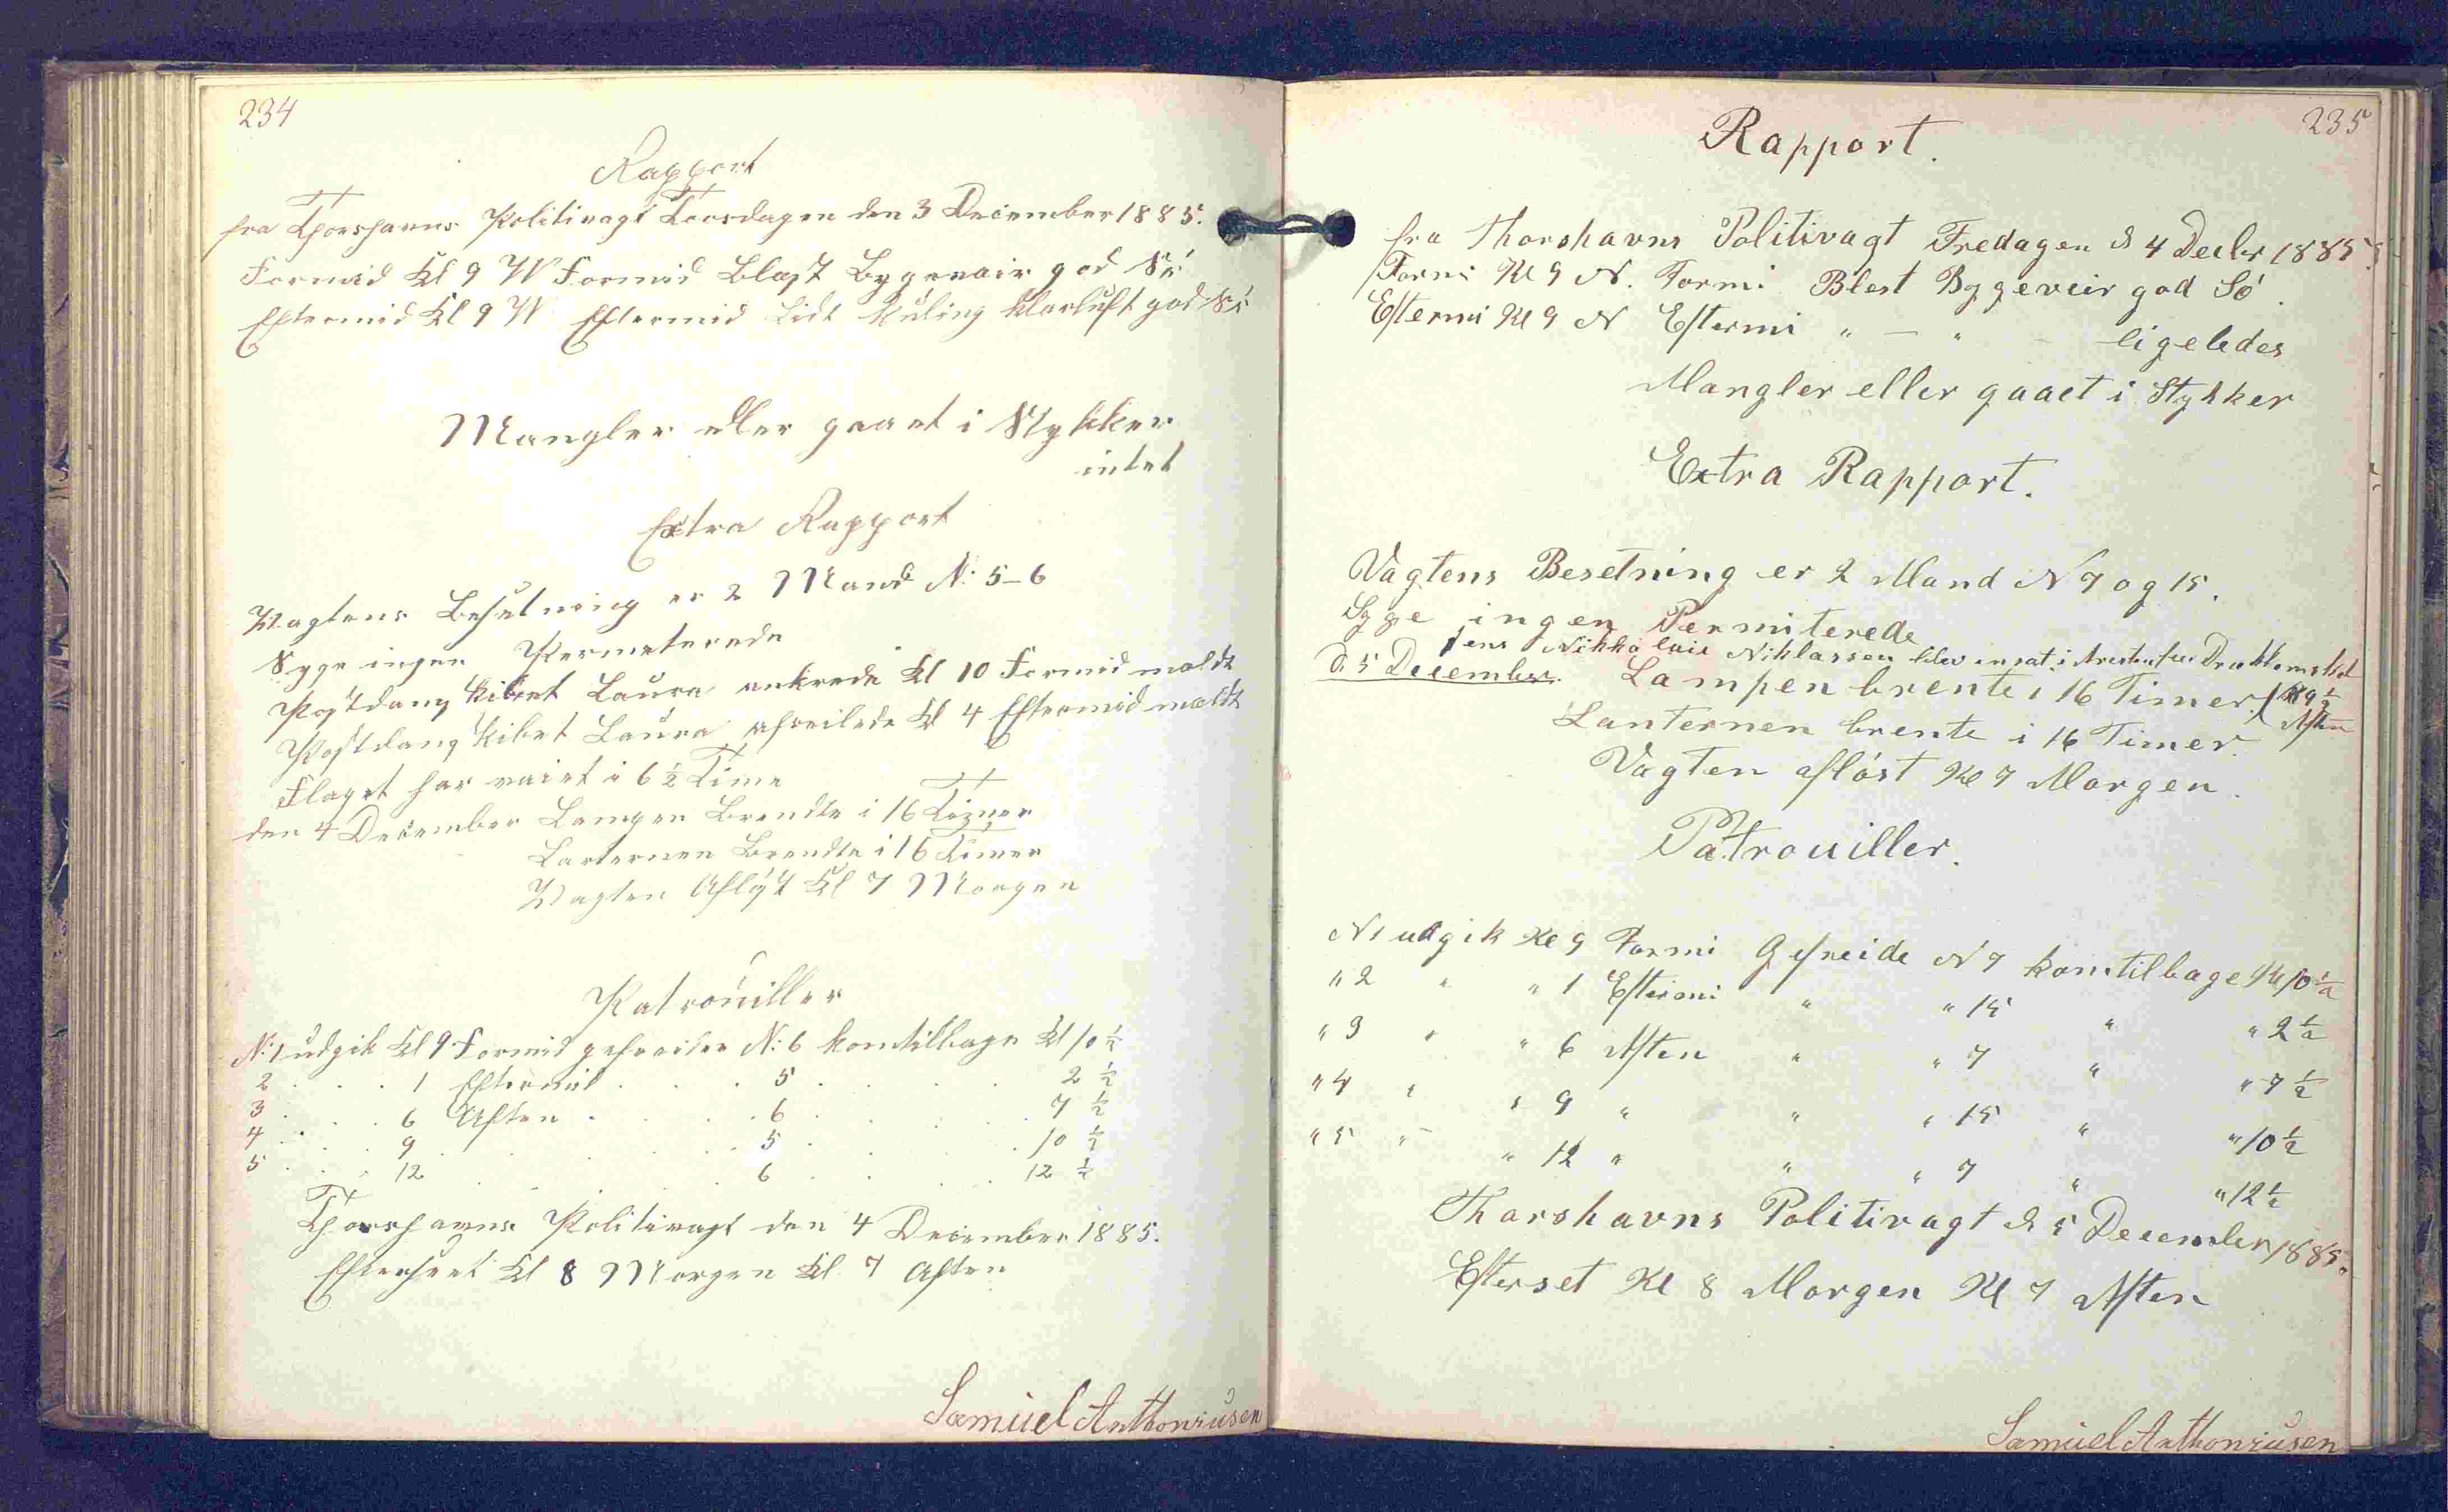 234
Rapport
fra Thorshavns Politivagt Torsdagen den 3 December 1885.
Formid Kl 9 W Formid Blast Bygevair god Sö
Eftermid Kl 9 W Eftermid Lidt Kuling Klarluft god Sö
Mangler eller gaaet i Stykker
intet
Extra Rapport
Vagtens Besetning er 2 Mand N: 5-6
Syge ingen Permeterede
Postdampskibet Laura ankrede Kl 10 Formid maldt
Postdampskibet Laura afseilede Kl 4 Eftermid maldt
Flaget har vaiet i 6 ½ Time
den 4 December Lampen Brendte i 16 Timer
Lanternen Brendte i 16 Timer
Vagten Afløst Kl 7 Morgen
Patrouiller
N: 1 udgik Kl 9 Formid gefreider N: 6 komtilbage Kl 10 ½
2 . . . 1 Eftermid . . . 5 . . . . 2 ½
3 . . . 6 Aften . . . 6 . . . . 7 ½
4 . . . 9 . . . . 5 . . . . 10 ½
5 . . . 12 . . . . 6 . . . . 12 ½
Thorshavns Politivagt den 4 December 1885.
Efterseet Kl 8 Morgen Kl 7 Aften
Samuel Anthoniusen
235
Rapport.
fra Thorshavns Politivagt Fredagen d 4 Decbr 1885.
Formi Kl 9 N. Formi Blest Byggeveir god Sö.
Eftermi Kl 9 N Eftermi " — " ligeledes
Mangler eller gaaet i Stykker
Extra Rapport.
Vagtens Besetning er 2 Mand N 7 og 15.
Syge ingen Permiterede
Jens Nikkolaie Niklassen blev ensat i Aresten for Drukkenskab
D. 5 December. Lampen brente i 16 Timer Kl 9 ½
Aften
Lanternen brente i 16 Timer.
Vagten aflöst Kl 7 Morgen.
Patrouiller.
N 1 udgik Kl 9 Formi Gefreide N 7 komtilbage Kl 10 ½
" 2 " " 1 Eftermi " " 15 " " 2 ½
" 3 " " 6 Aften " " 7 " " 7 ½
" 4 " " 9 " " " 15 " " 10 ½
" 5 " " 12 " " " 7 " " 12 ½
Thorshavns Politivagt d 5 December 1885.
Efterset Kl 8 Morgen Kl 7 Aften
Samuel Anthoniusen